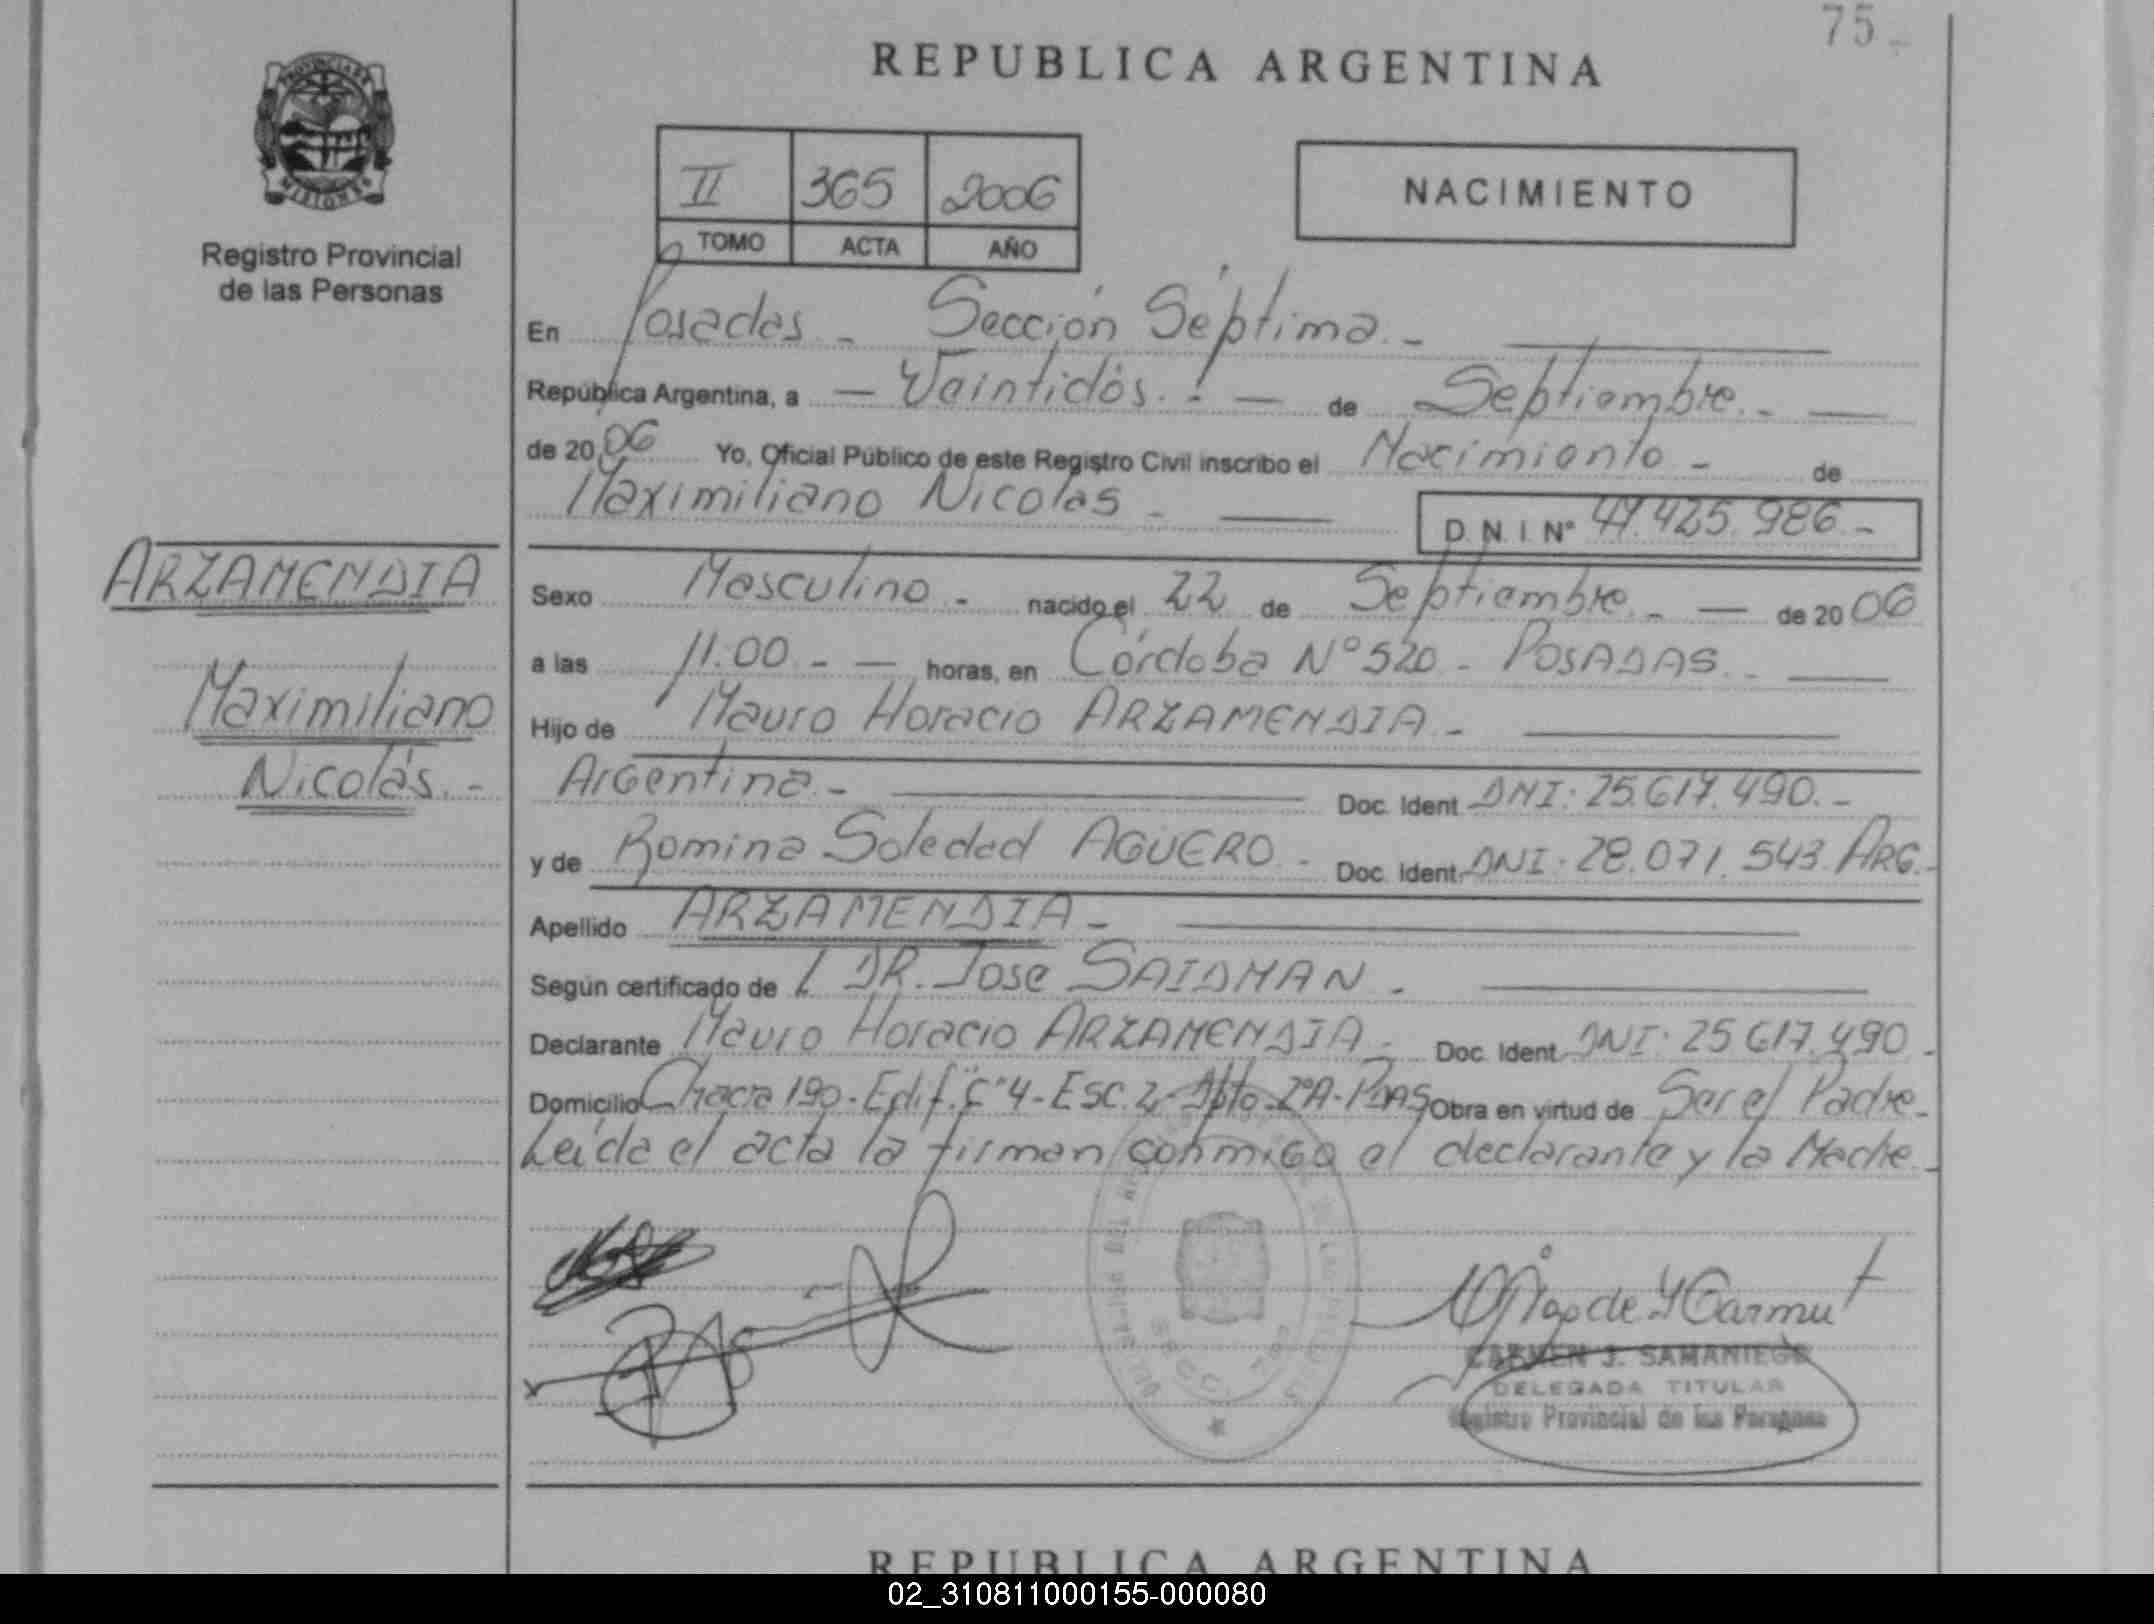 75-
REPUBLICA ARGENTINA
PROVINCIA DE
MISIONES
Registro Provincial
de las Personas
II 365 2006
TOMO ACTA AÑO
NACIMIENTO
En Posadas - Sección Séptima.-
República Argentina, a Veintidós.- de Septiembre.-
de 2006 Yo, Oficial Público de este Registro Civil inscribo el Nacimiento - de
Maximiliano Nicolás - D.N.I. Nº 47.425.986.-
ARZAMENDIA
Maximiliano
Nicolás.-
Sexo Masculino - nacido el 22 de Septiembre.- de 2006
a las 11.00 - horas, en Córdoba Nº 520 - POSADAS.-
Hijo de Mauro Horacio ARZAMENDIA.-
Argentina.- Doc. Ident. DNI: 25.617.490.-
y de Romina Soledad AGÜERO - Doc. Ident. DNI: 28.071.543. ARG.-
Apellido ARZAMENDIA -
Según certificado de DR. Jose SAIDMAN.
Declarante Mauro Horacio ARZAMENDIA.- Doc. Ident. DNI: 25617.490.-
Domicilio Chacra 190-Edif. "C" 4-Esc. 2-Dpto. 2ºA-Pdas Obra en virtud de Ser el Padre.-
Leída el acta la firman conmigo el declarante y la Madre.-
SECC. 7
CARMEN J. SAMANIEGO
DELEGADA TITULAR
Registro Provincial de las Personas
REPUBLICA ARGENTINA
02_310811000155-000080